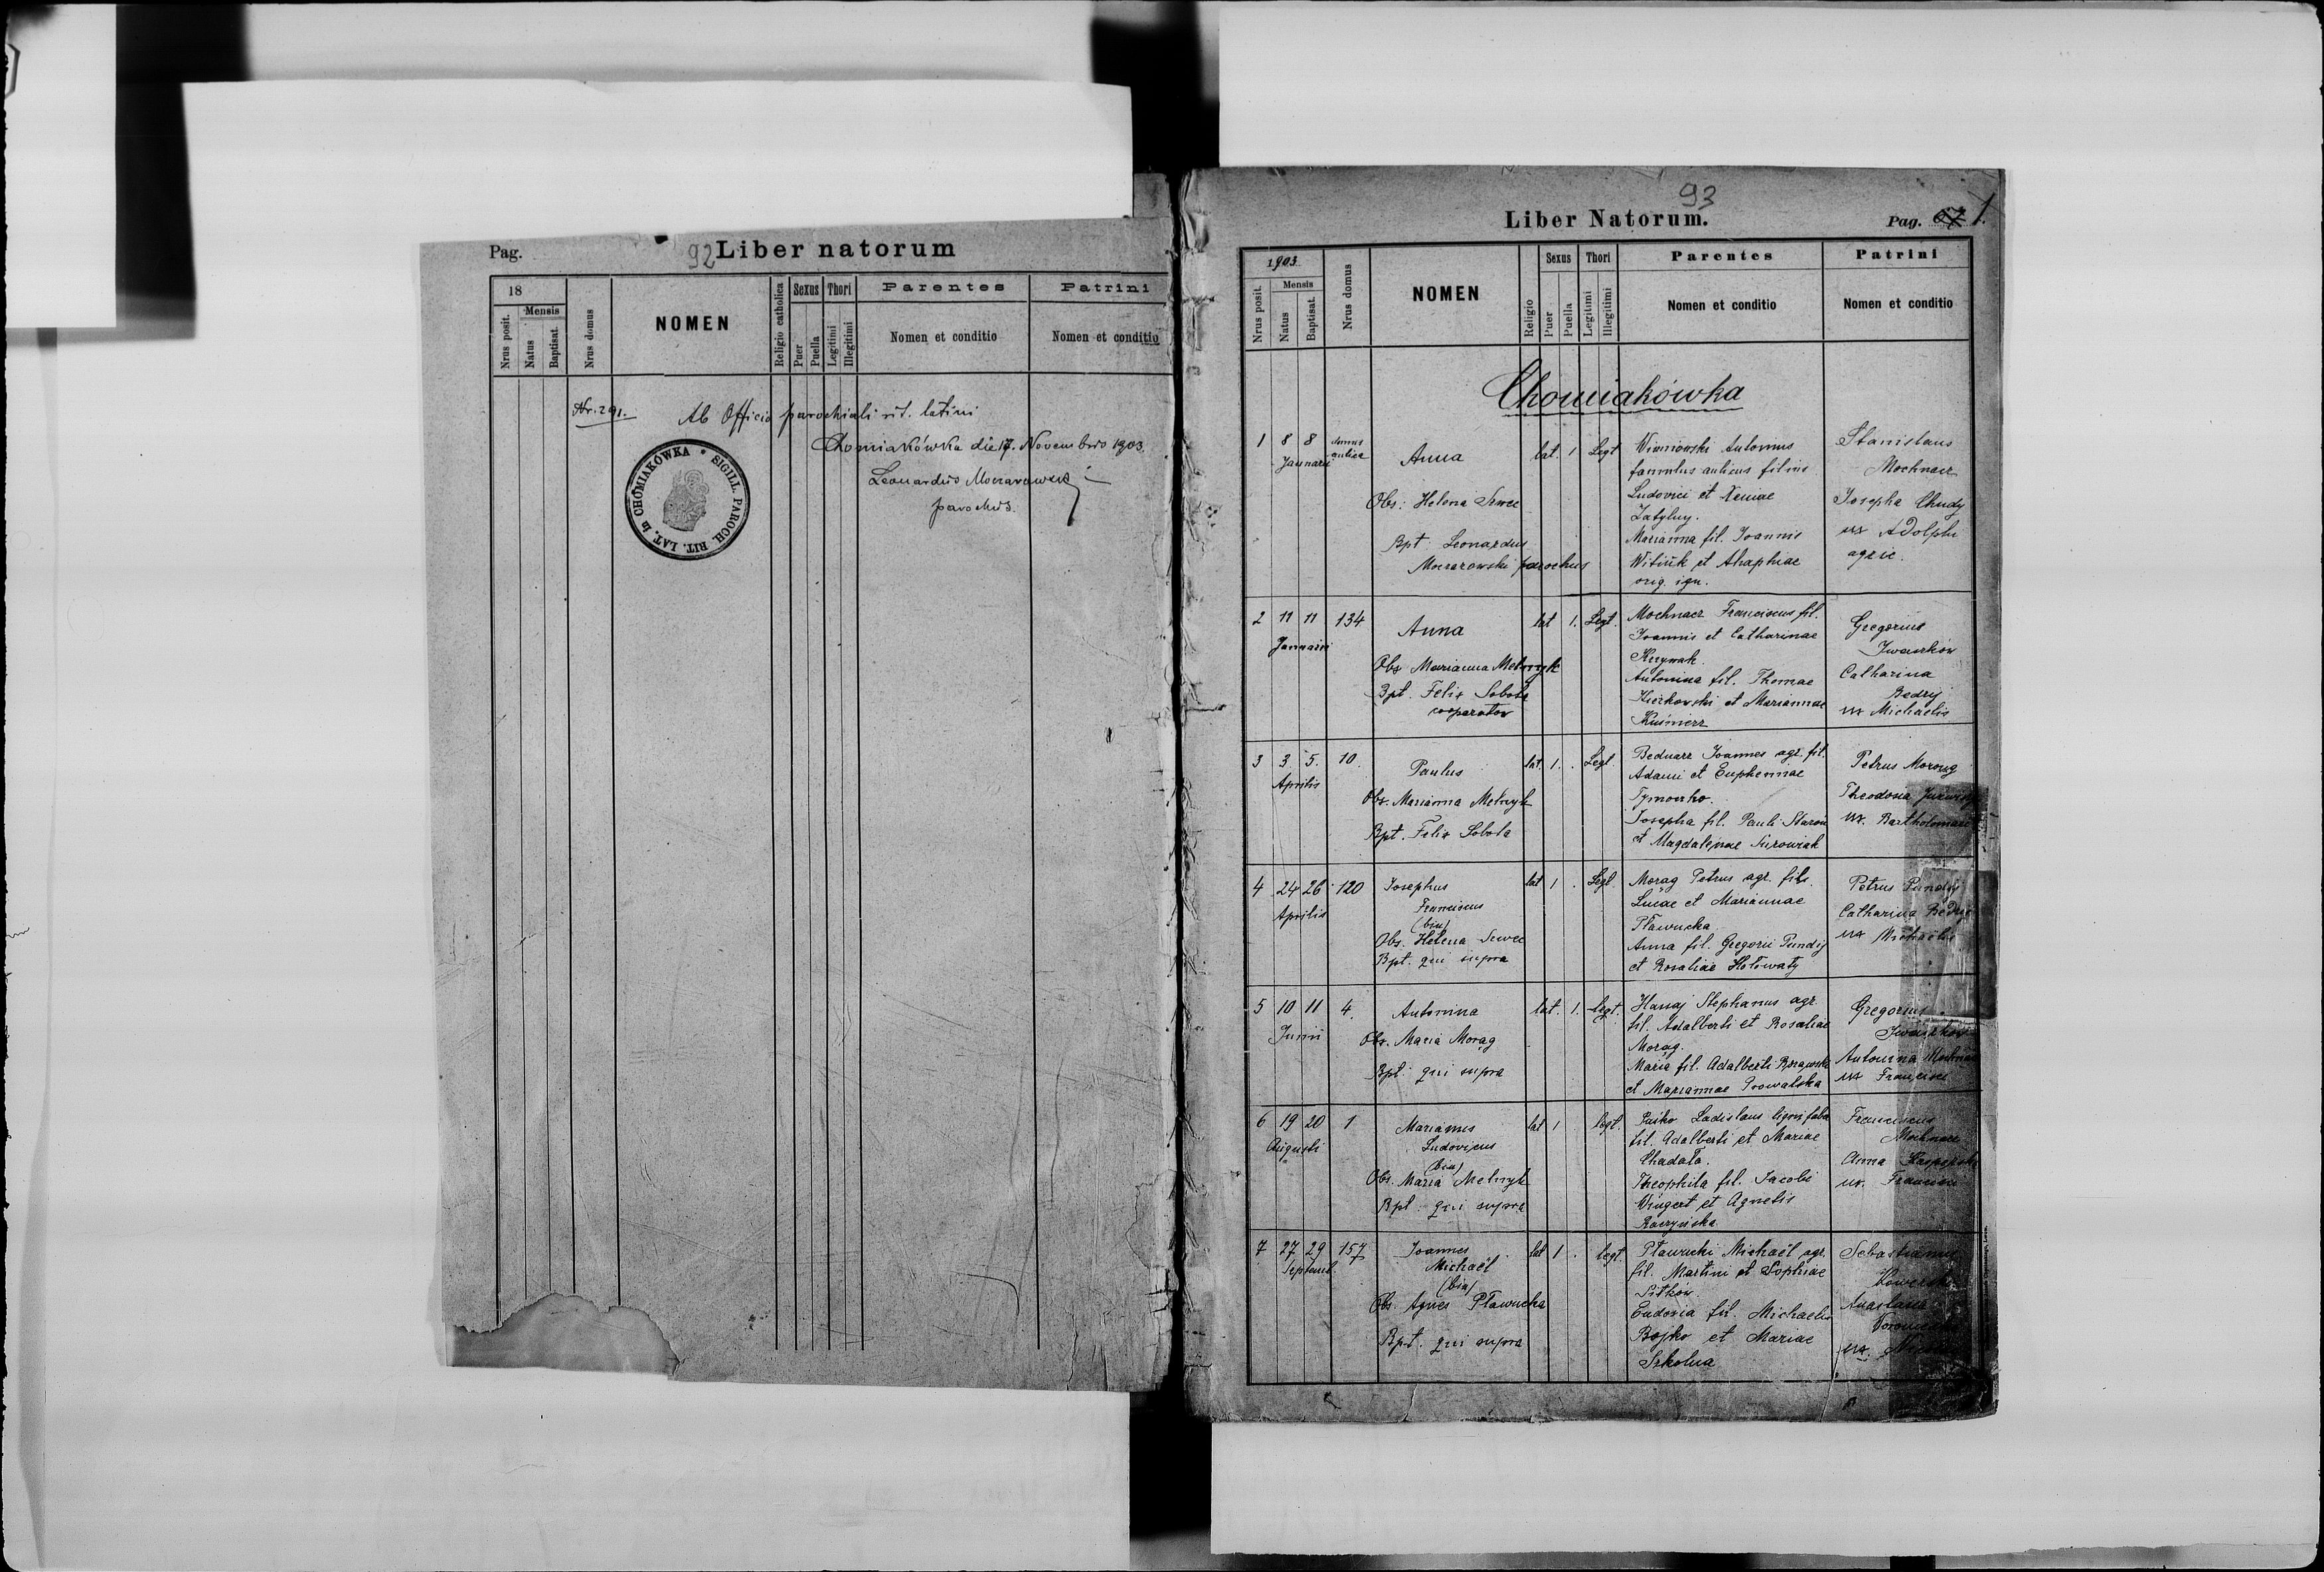 Pag.
92
Liber natorum
18
Mensis
Nrus posit.
Natus
Baptisat.
Nrus domus
NOMEN
Religio catholica
Sexus
Puer
Puella
Thori
Legitimi
Illegitimi
Parentes
Nomen et conditio
Patrini
Nomen et conditio
Nr. 291.
Ab Officio parochiali rit. latini
Chomiakówka die 17. Novembris 1903.
Leonardus
parochus.
SIGILL. PAROCH. RIT. LAT. In CHOMIAKÓWKA
93
Liber Natorum.
Pag. 67 1.
1903
Mensis
Nrus posit.
Natus
Baptisat.
Nrus domus
NOMEN
Religio
Sexus
Puer
Puella
Thori
Legitimi
Illegitimi
Parentes
Nomen et conditio
Patrini
Nomen et conditio
Chomiakówka
1 8 8 Januarii
domus aulica
Anna
Obs: Helena
Bpt Leonardus
parochus
lat. 1 Legt
Antonius
famulus aulicus filius
Ludovici et Xeniae
Marianna fil. Joannis
et Ahaphiae
orig. ign.
Stanislaus
Mochnacz
Josepha Chudy
ux Adolphi
agric.
2 11 11 Januarii
134
Anna
Obs Marianna Melnyk
Bpt. Felix Sobota
cooperator
lat 1. Legt.
Mochnacz Franciscus fil.
Joannis et Catharinae
Antonina fil. Thomae
et Mariannae
Kuśnierz
Gregorius
Iwaszków
Catharina
Bedrij
ux Michaelis
3 3 5. Aprilis
10.
Paulus
Obs. Marianna Melnyk
Bpt. Felix Sobota
lat. 1. Legt.
Bednarz Joannes agr. fil.
Adami et Eupheniae
Josepha fil. Pauli
et Magdalenae
Petrus Morong
Theodosia
ux. Bartholomaei
4 24 26 Aprilis
120
Josephus
Franciscus
(bin)
Obs. Helena
Bpt. qui supra
lat 1 Legt
Morag Petrus agr. fil.
Lucae et Mariannae
Pławucka
Anna fil. Gregorii Pundij
et Rosaliae Hołowaty
Petrus Pundij
Catharina Bedrij
ux Michaelis
5 10 11 Junii
4.
Antonina
Obs. Maria Morąg
Bpt. qui supra
lat. 1. legt.
Stephanus agr.
fil. Adalberti et Rosaliae
Morąg.
Maria fil. Adalberti
et Mariannae
Gregorius
Iwaszków
Antonina
ux Francisci
6 19 20 Augusti
1
Marianus
Ludovicus
(bin)
Obs. Maria Melnyk
Bpt. qui supra
lat 1 legt.
Ladislaus
fil. Adalberti et Mariae
Theophila fil. Jacobi
Wingert et Agnetis
Franciscus
Anna
ux. Francisci
7 27 29 Septemb.
157
Joannes
Michaël
(bin)
Obs. Agnes Pławucka
Bpt. qui supra
lat 1 legt
Pławucki Michaël agr.
fil. Martini et Sophiae
Eudoxia fil. Michaelis
Bojko et Mariae
Szkolna
Sebastianus
Anastasia
ux.